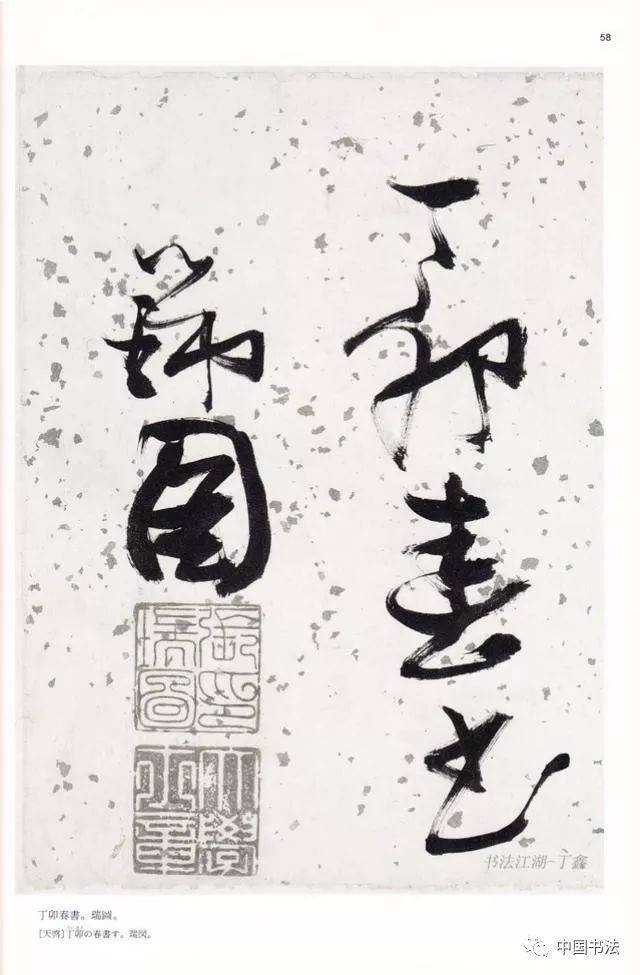 58
丁卯春書
瑞圖
張瑞圖印
書法江湖-丁鑫
丁卯春書。瑞圖。
[天啓]丁卯の春書す。瑞図。
中国书法